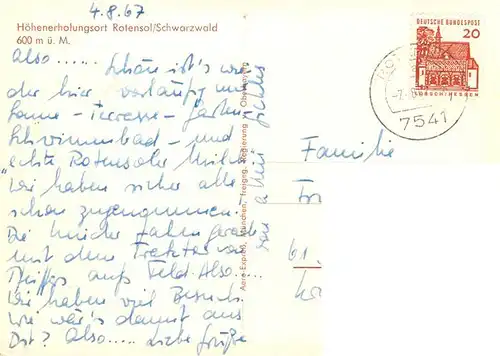 4.8.67
Höhenerholungsort Rotensol/Schwarzwald
600 m ü. M.
Also..... Schön ist's wie
der hier vorläufig nur
Sonne - Terrasse - Garten -
Schwimmbad - und
echte Rotensoler Milch
Wir haben sicher alle
schon zugenommen.
Die Kinder fahren gerade
mit dem Traktor von
aufs Feld. Also......
Wir haben viel Besuch.
Wie wär's damit aus
Ost? Also..... Liebe Grüße
von
Aero-Express, München, Freigeg. Regierung v. Oberbayern
DEUTSCHE BUNDESPOST
20
LORSCH/HESSEN
7541
Familie
61.